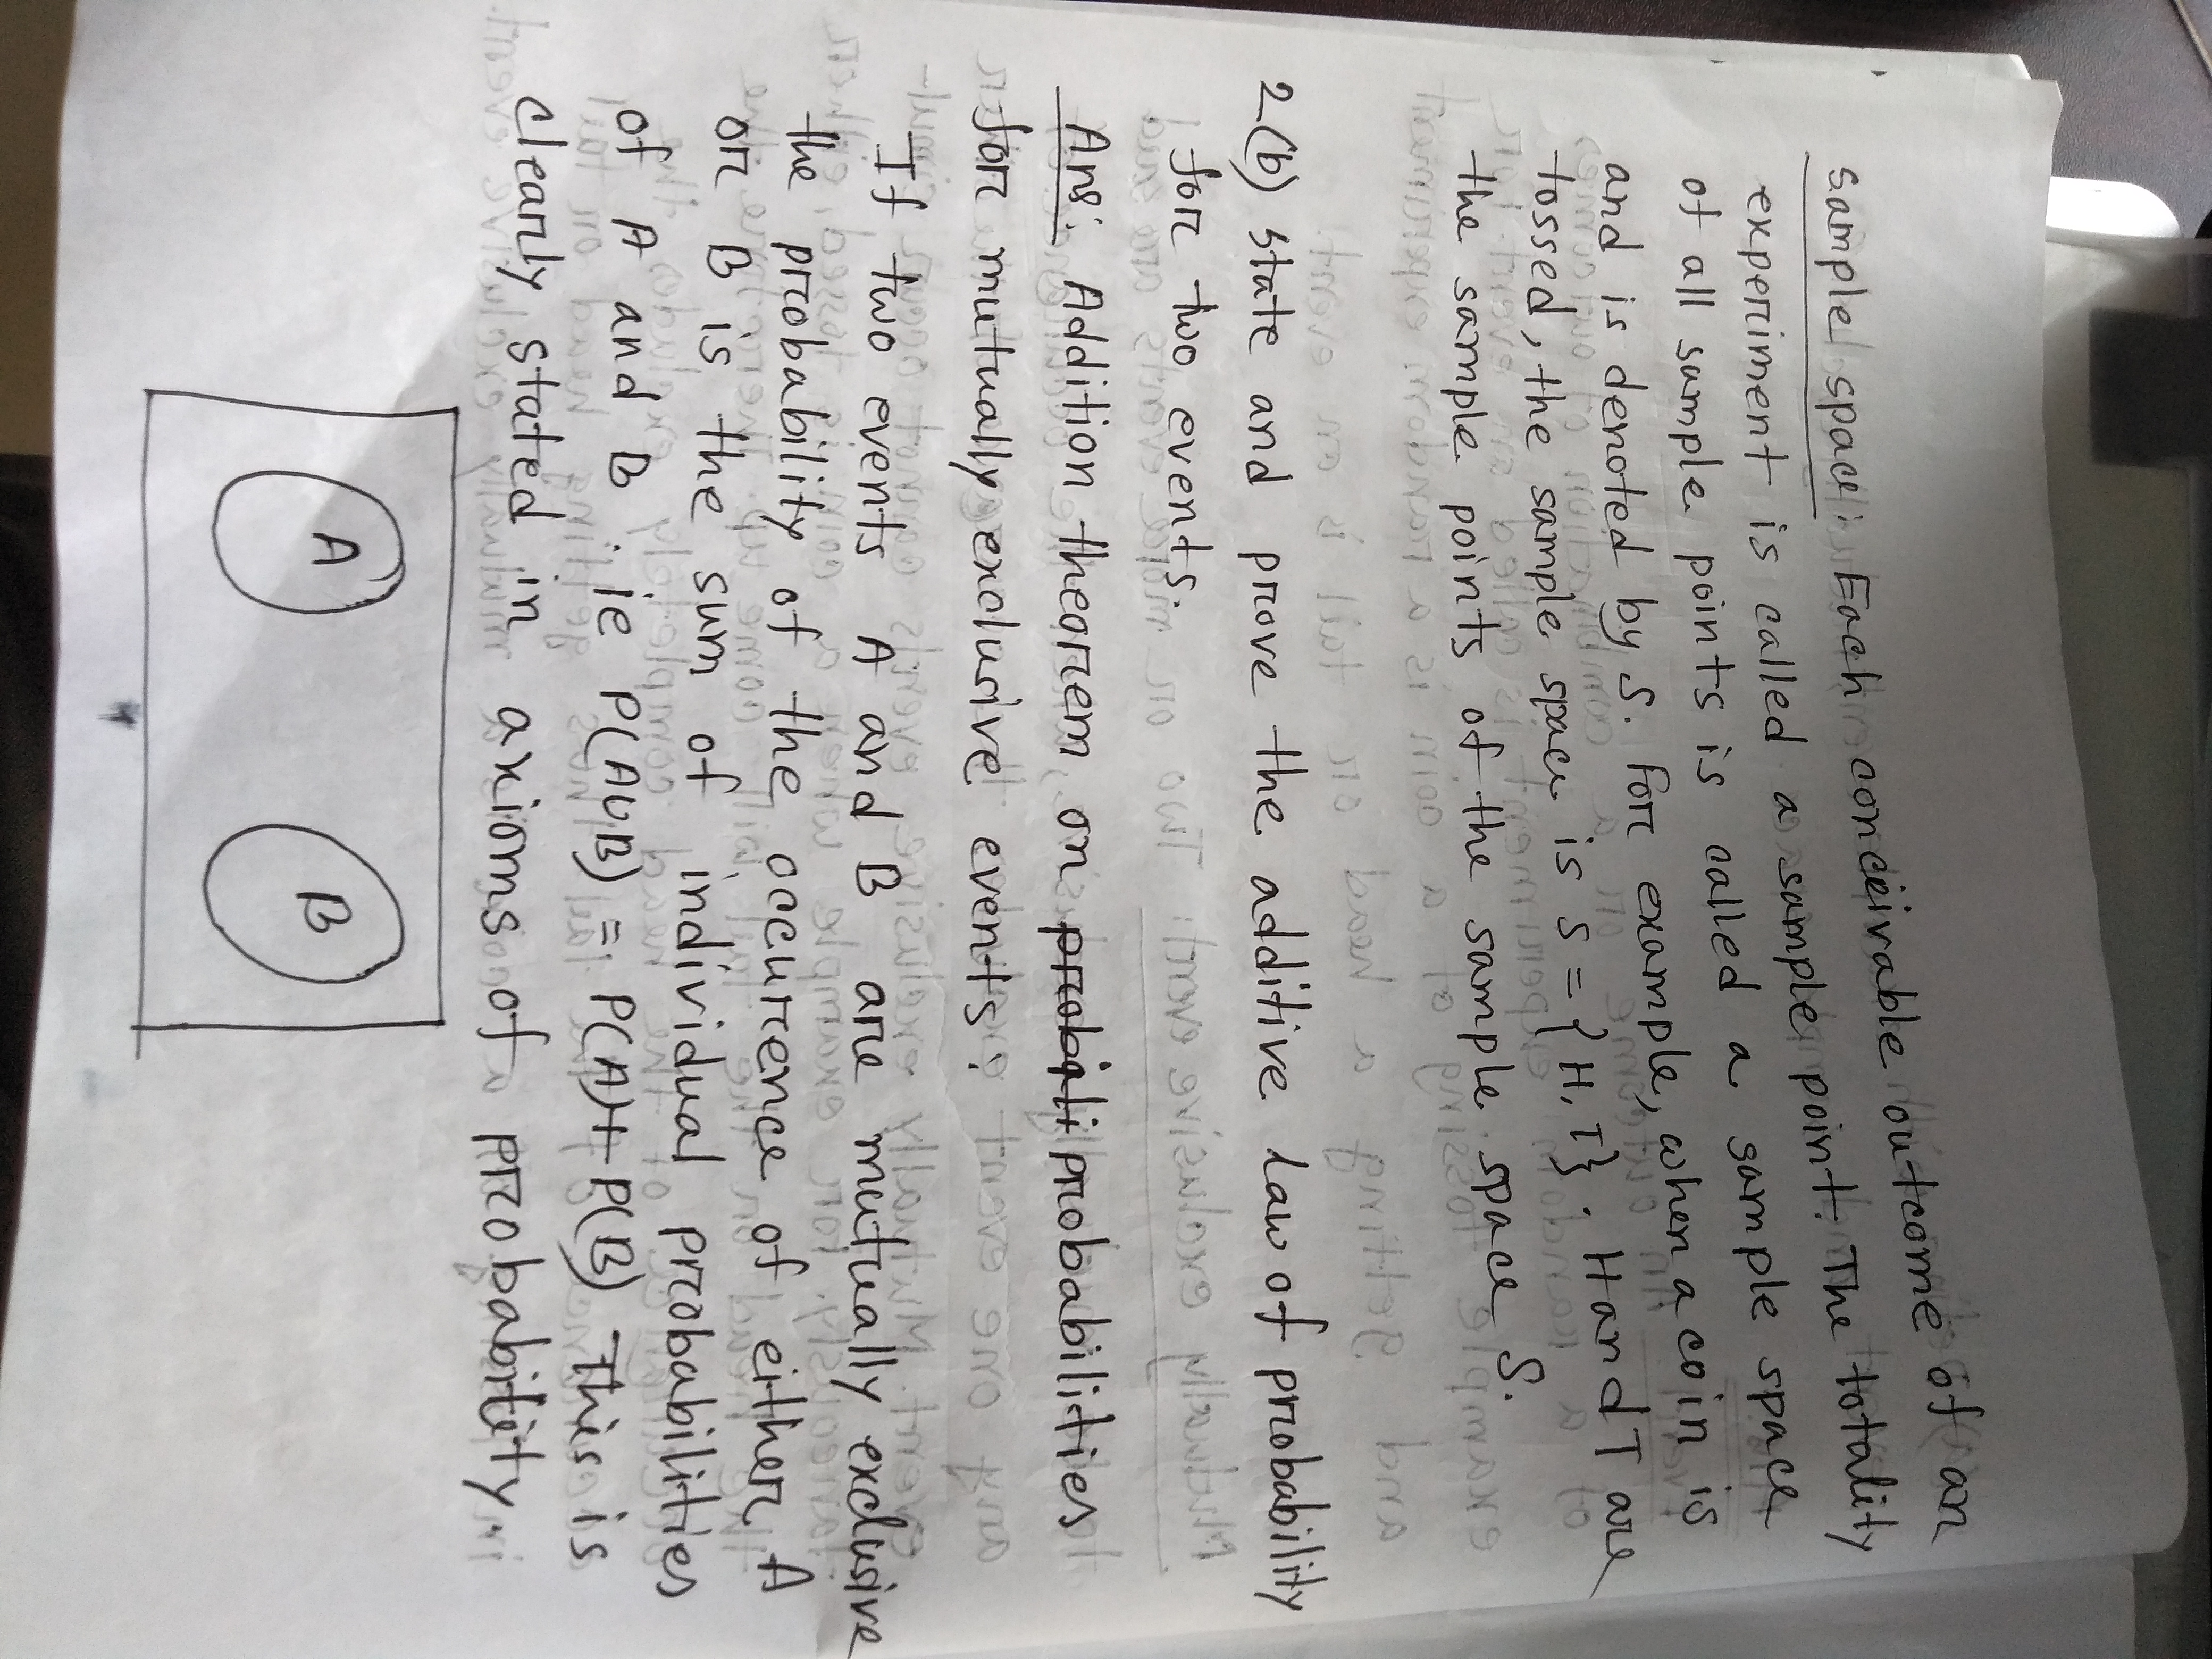 sample space: Each conceivable outcome of an
experiment is called a sample point. The totality
of all sample points is called a sample space
and is denoted by S. For example, when a coin is
tossed, the sample space is S = {H, T}. H and T are
the sample points of the sample space S.
2(b) state and prove the additive law of probability
for two events.
Ans: Addition theorem on probabili probabilities
for mutually exclusive events:
If two events A and B are mutually exclusive
the probability of the occurrence of either A
or B is the sum of individual probabilities
of A and B ie P(AUB) = P(A)+ P(B) This is
clearly stated in axioms of probability
A B